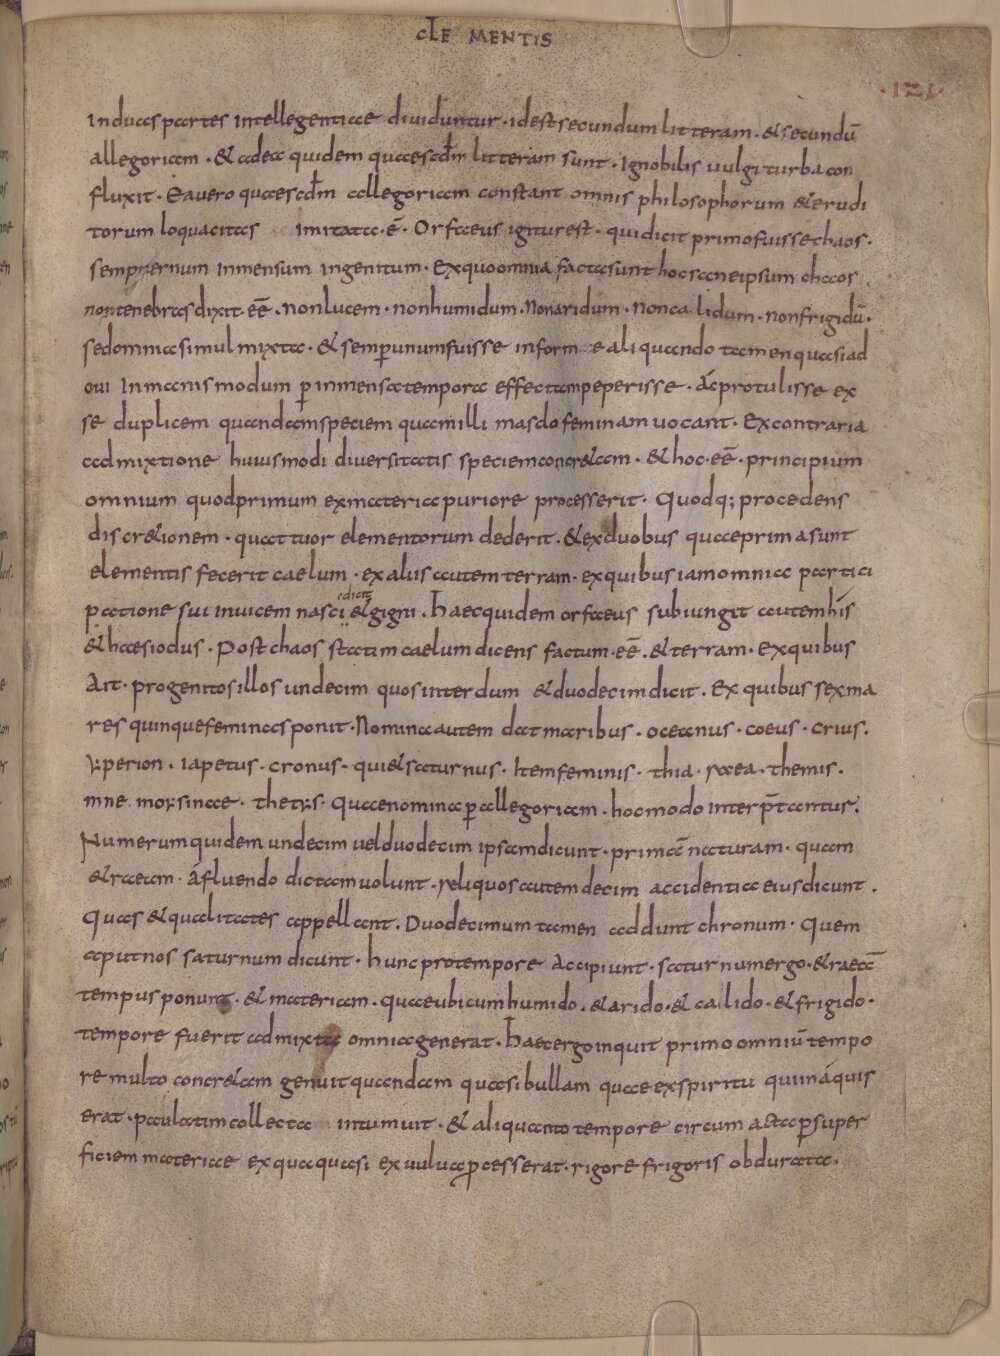 CLEMENTIS
·121·
In duas partes intellegentiae diuiduntur · id est secundum litteram · & secundū
allegoricam · & adea quidem quae scdm litteram sunt · Ignobilis uulgi turba con
fluxit · Ea uero quae scdm allegoricam constant omnis philosophorum & erudi
torum loquacitas imitata · ē · Orfaeus igitur est · qui dicit primo fuisse chaos ·
sempiternum inmensum ingenitum · Ex quo omnia facta sunt hoc sane ipsum chaos
non tenebras dixit · eē · non lucem · non humidum · Non aridum · Non calidum · non frigidū ·
sed omnia simul mixta · & semp unum fuisse informe aliquando tamen quasi ad
oui inmanis modum p inmensa tempora effectam peperisse · Ac protulisse ex
se duplicem quandam speciem quam illi masclofeminam uocant · Ex contraria
admixtione huiusmodi diuersitatis speciem concr&am · & hoc · eē · principium
omnium quod primum ex materia puriore processerit · Quodq; procedens
discr&ionem · quattuor elementorum dederit · & ex duobus quae prima sunt
elementis fecerit caelum · ex aliis autem terram · ex quibus iam omnia partici
patione sui inuicem nasci dicit & gigni · Haec quidem orfaeus subiungit autem his
& haesiodus · Post chaos statim caelum dicens factum · eē · & terram · Ex quibus
Ait · progenitos illos undecim quos interdum & duodecim dicit · Ex quibus sex ma
res quinque feminas ponit · Nomina autem dat maribus · oceanus · coeus · crius ·
yperion · iapetus · cronus · qui & saturnus · Item feminis · thia · raea · themis ·
mne mosinae · thetys · Quae nomina p allegoricam · hoc modo interpretantur ·
Numerum quidem undecim uel duodecim ipsam dicunt · primā naturam · quam
& raeam · A fluendo dictam uolunt · reliquos autem decim accidentia eius dicunt ·
Quas & qualitates appellant · Duodecimum tamen addunt chronum · Quem
aput nos saturnum dicunt · hunc pro tempore Accipiunt · saturnum ergo · & raeā
tempus ponunt · & materiam · quae ubi cum humido · & arido · & calido · & frigido ·
tempore fuerit admixta omnia generat · Haec ergo inquit primo omniū tempo
re multo concr&am genuit quandam quasi bullam quae ex spiritu qui in aquis
erat · paulatim collecta intumuit · & aliquanto tempore circumacta p super
ficiem materiae ex qua quasi ex uulua pcesserat · rigore frigoris obdurata ·